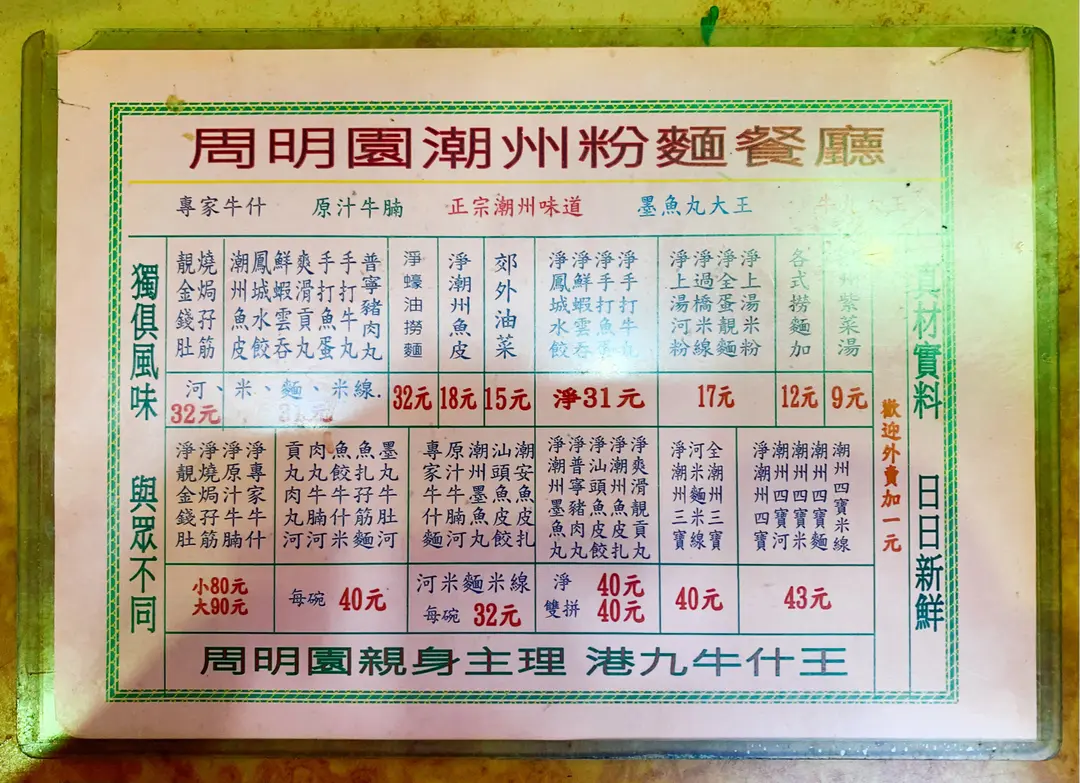 周明園潮州粉麵餐廳
專家牛什 原汁牛腩 正宗潮州味道 墨魚丸大王
獨俱風味 與眾不同
靚金錢肚
燒焗孖筋
潮州魚皮
鳳城水餃
鮮蝦雲吞
爽滑貢丸
手打魚蛋
手打牛丸
普寧豬肉丸
淨蠔油撈麵
淨潮州魚皮
郊外油菜
淨鳳城水餃
淨鮮蝦雲吞
淨手打魚蛋
淨手打牛丸
淨上湯河粉
淨過橋米線
淨全蛋靚麵
淨上湯米粉
各式撈麵加
州紫菜湯
河、米、麵、米線.
32元 32元 18元 15元 淨31元 17元 12元 9元
淨靚金錢肚
淨燒焗孖筋
淨原汁牛腩
淨專家牛什
貢丸肉丸河
肉丸牛腩河
魚餃牛什米
魚扎孖筋麵
墨丸牛肚河
專家牛什麵
原汁牛腩河
潮州墨魚丸
汕頭魚皮餃
潮安魚皮扎
淨潮州墨魚丸
淨普寧豬肉丸
淨汕頭魚皮餃
淨潮州魚皮扎
淨爽滑靚貢丸
淨潮州三寶
河米麵米線
全潮州三寶
淨潮州四寶
潮州四寶河
潮州四寶米
潮州四寶麵
潮州四寶米線
小80元
大90元
每碗 40元
河米麵米線
每碗 32元
淨 40元
雙拼 40元
40元
43元
歡迎外賣加一元
真材實料 日日新鮮
周明園親身主理 港九牛什王